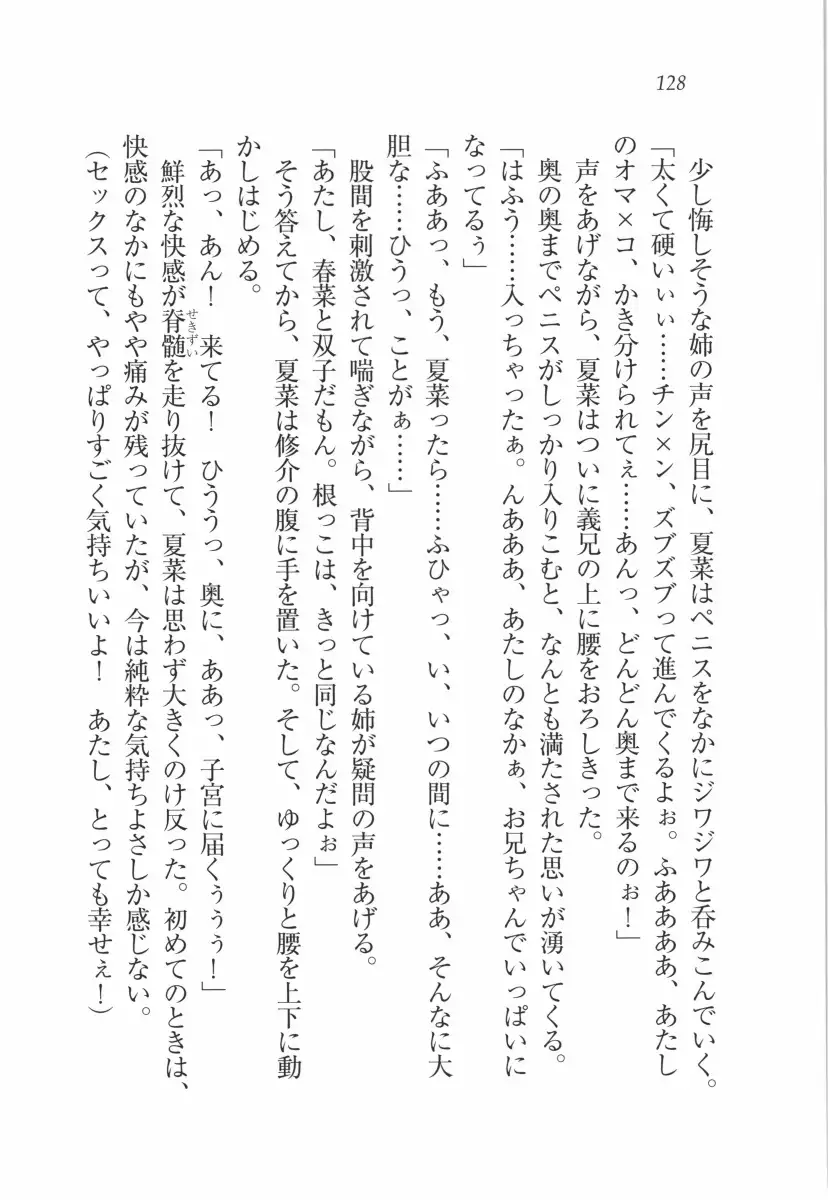 128
少し悔しそうな姉の声を尻目に、夏菜はペニスをなかにジワジワと呑みこんでいく。
「太くて硬いぃぃ……チン×ン、ズブズブって進んでくるよぉ。ふああああ、あたし
のオマ×コ、かき分けられてぇ……あんっ、どんどん奥まで来るのぉ！」
声をあげながら、夏菜はついに義兄の上に腰をおろしきった。
奥の奥までペニスがしっかり入りこむと、なんとも満たされた思いが湧いてくる。
「はふう……入っちゃったぁ。んあああ、あたしのなかぁ、お兄ちゃんでいっぱいに
なってるぅ」
「ふああっ、もう、夏菜ったら……ふひゃっ、い、いつの間に……ああ、そんなに大
胆な……ひうっ、ことがぁ……」
股間を刺激されて喘ぎながら、背中を向けている姉が疑問の声をあげる。
「あたし、春菜と双子だもん。根っこは、きっと同じなんだよぉ」
そう答えてから、夏菜は修介の腹に手を置いた。そして、ゆっくりと腰を上下に動
かしはじめる。
「あっ、あん！　来てる！　ひううっ、奥に、ああっ、子宮に届くぅぅぅ！」
鮮烈な快感が脊髄せきずいを走り抜けて、夏菜は思わず大きくのけ反った。初めてのときは、
快感のなかにもやや痛みが残っていたが、今は純粋な気持ちよさしか感じない。
（セックスって、やっぱりすごく気持ちいいよ！　あたし、とっても幸せぇ！）